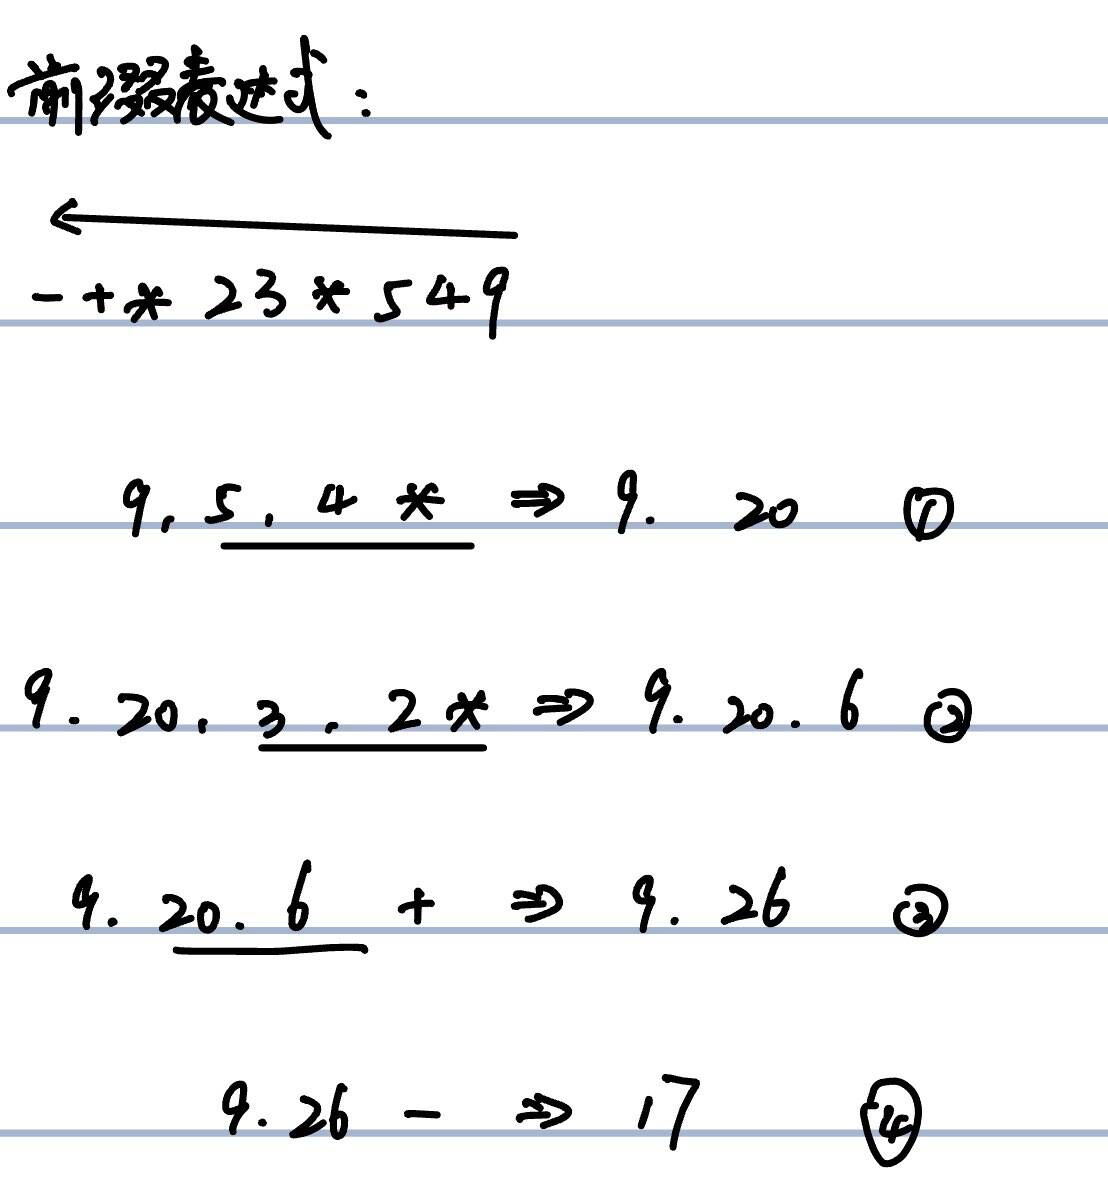 前缀表达式：
- + * 2 3 * 5 4 9
9, 5, 4 * ⇒ 9. 20 ①
9. 20, 3. 2 * ⇒ 9. 20. 6 ②
9. 20. 6 + ⇒ 9. 26 ③
9. 26 - ⇒ 17 ④